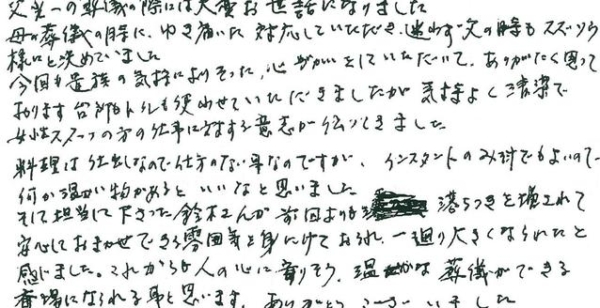 父 の葬儀の際には大変お世話になりました
母の葬儀の時に、ゆき届いた対応していただき、迷わず父の時もスズソウ
様にと決めていました
今回も遺族の気持によりそった、心づかいをしていただいて、ありがたく思って
おります 台所もトイレも使わせていただきましたが 気持よく清潔で
女性スタッフの方の仕事に対する意志が伝ってきました
料理は仕出しなので仕方のない事なのですが、インスタントのみそ汁でもよいので
何か温かい物があると いいなと思いました
そして担当して下さった鈴木さんが 前回よりも 落ちつきを増されて
安心しておまかせできる雰囲気を身につけておられ、一廻り大きくなられたと
感じました。これからも人の心に寄りそう、温かな 葬儀ができる
斎場になられる事と思います。ありがとうございました